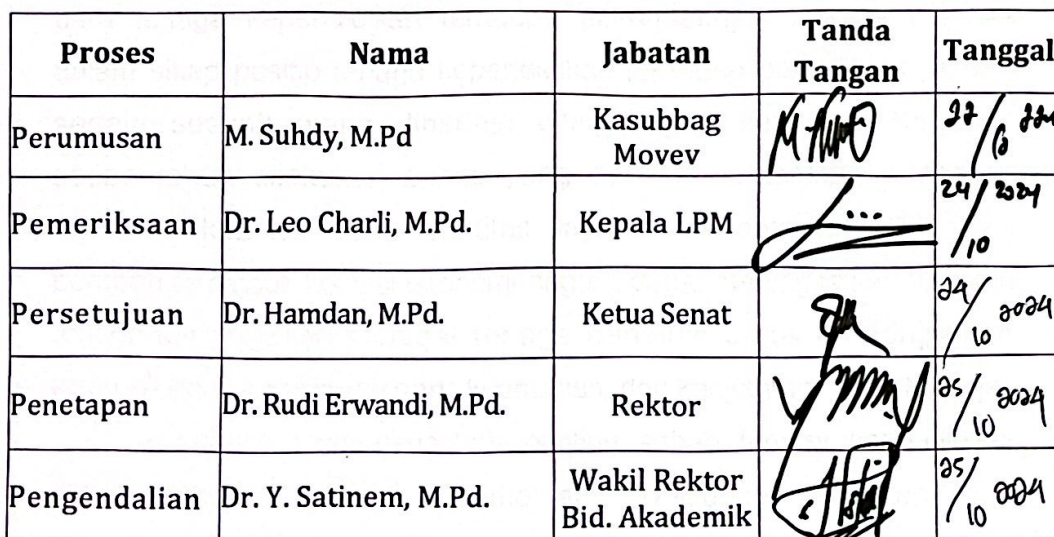 Proses Nama Jabatan Tanda Tangan Tanggal
Perumusan M. Suhdy, M.Pd Kasubbag Movev
Pemeriksaan Dr. Leo Charli, M.Pd. Kepala LPM 24/10 2024
Persetujuan Dr. Hamdan, M.Pd. Ketua Senat 24/10 2024
Penetapan Dr. Rudi Erwandi, M.Pd. Rektor 25/10 2024
Pengendalian Dr. Y. Satinem, M.Pd. Wakil Rektor Bid. Akademik 25/10 2024